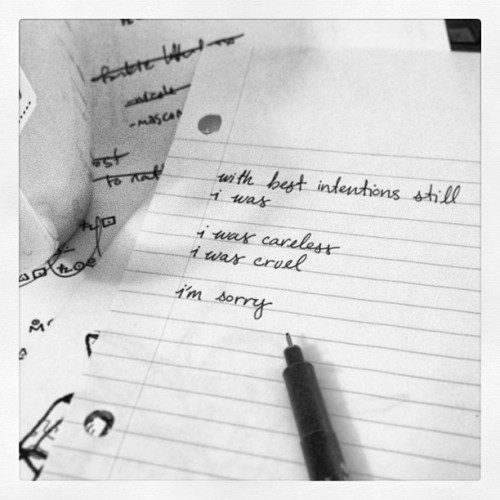 with best intentions still
i was
i was careless
i was cruel
i'm sorry
to